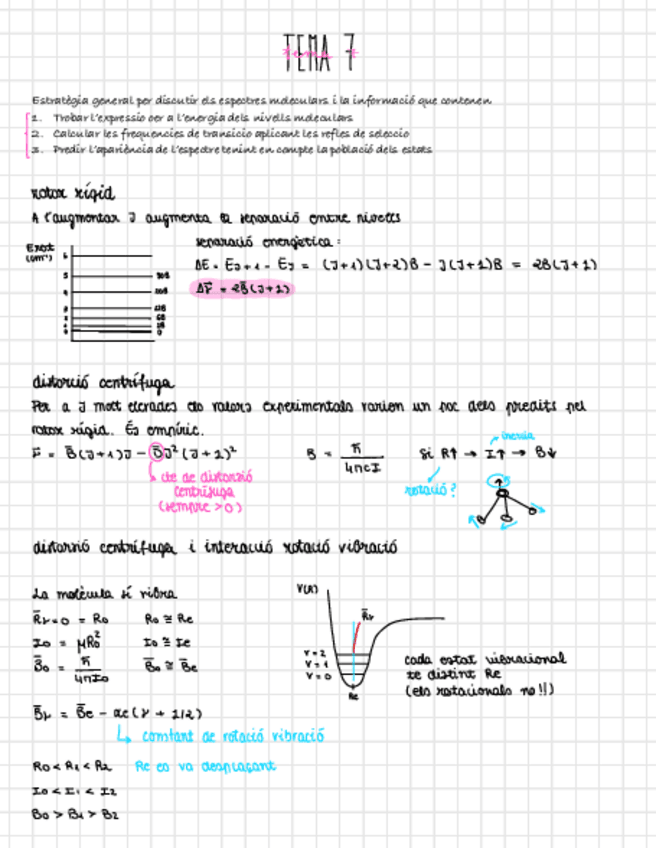 TEMA 7
Estratègia general per discutir els espectres moleculars i la informació que contenen
1. Trobar l'expressio per a l'energia dels nivells moleculars
2. Calcular les frequencies de transicio aplicant les refles de seleccio
3. Predir l'apariència de l'espectre tenint en compte la població dels estats
rotor rígid
A l'augmentar J augmenta la separació entre nivells
separació energètica:
Erot
(cm⁻¹)
ΔE = EJ+1 - EJ = (J+1)(J+2)B - J(J+1)B = 2B(J+1)
Δν̄ = 2B̄(J+1)
distorció centrífuga
Per a J molt elevades els valors experimentals varien un poc dels predits pel
rotor rígid. És empíric.
F = B̄(J+1)J - D̄J²(J+1)²
B = ħ / 4πcI
Si R↑ → I↑ → B↓
inercia
rotació?
cte de distorsió
centrífuga
(sempre >0)
distorsió centrífuga i interacció rotació vibració
La molècula sí vibra
R̄v=0 = R0 R0 ≅ Re
I0 = μR0² I0 ≅ Ie
B̄0 = ħ / 4πI0 B̄0 ≅ B̄e
V(R)
R̄v
v=2
v=1
v=0
Re
cada estat vibracional
te distint Re
(els rotacionals no!!)
B̄v = B̄e - αe(v + 1/2)
constant de rotació vibració
R0 < R1 < R2 Re es va desplaçant
I0 < I1 < I2
B0 > B1 > B2